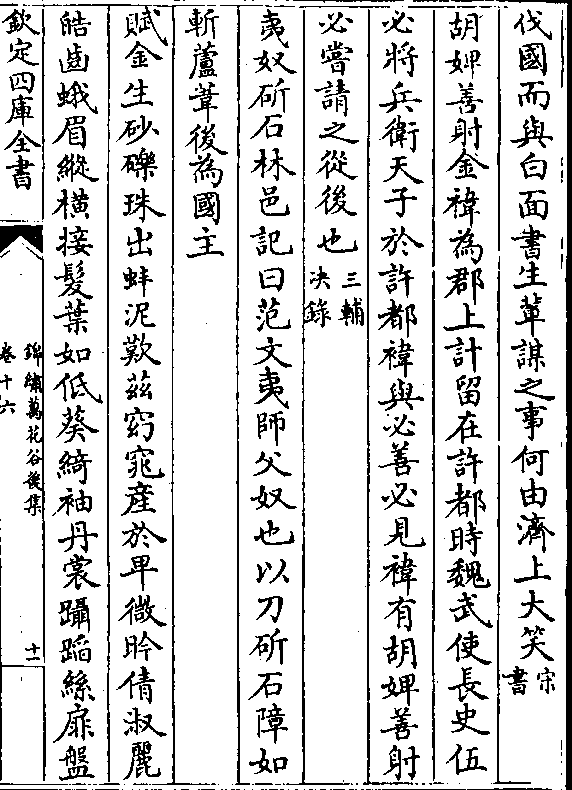 伐國而與白面書生軰謀之事何由濟上大笑宋書
胡婢善射金禕為郡上計留在許都時魏武使長史伍
必將兵衛天子於許都禕與必善必見禕有胡婢善射
必嘗請之從後也三輔决錄
夷奴斫石林邑記曰范文夷師父奴也以刀斫石障如
斬蘆葦後為國主
賦金生砂礫珠出蚌泥歎茲窈窕産於卑微盻倩淑麗
皓齒蛾眉縱橫接髮葉如低葵綺袖丹裳躡蹈絲扉盤
欽定四庫全書
錦繡萬花谷後集
卷十六
十一